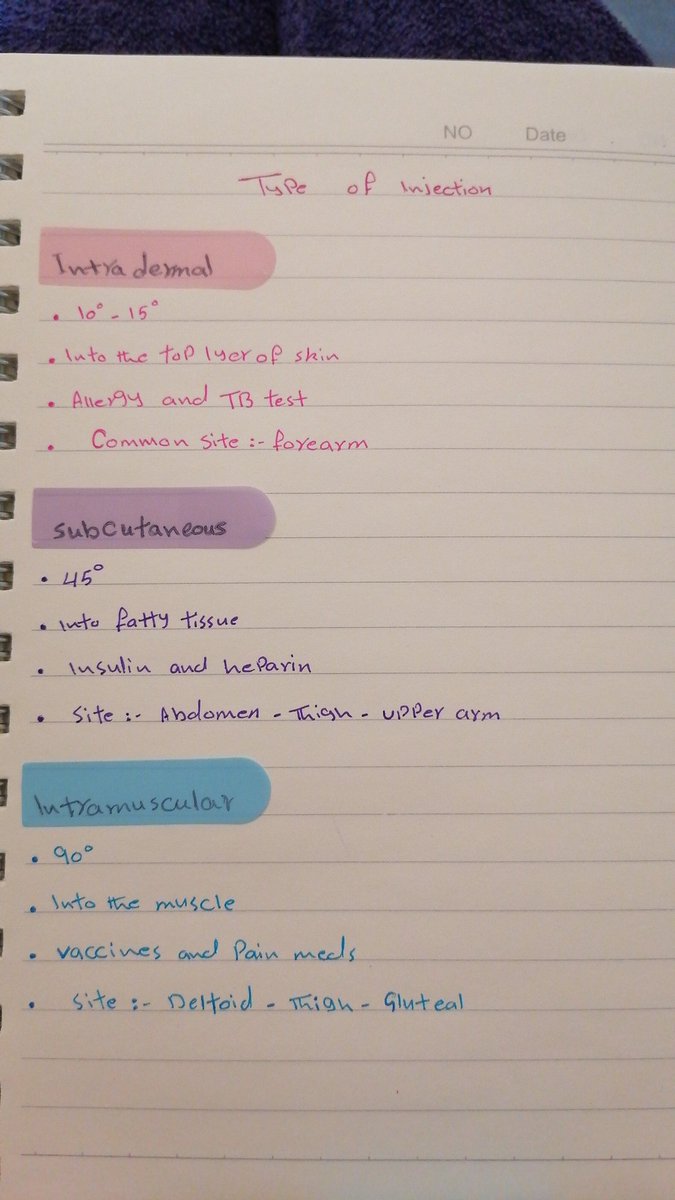 NO Date
Type of Injection
Intradermal
• 10° - 15°
• Into the top lyer of skin
• Allergy and TB test
• Common site :- forearm
subcutaneous
• 45°
• Into fatty tissue
• Insulin and heparin
• Site :- Abdomen - Thigh - upper arm
Intramuscular
• 90°
• Into the muscle
• vaccines and Pain meds
• Site :- Deltoid - Thigh - Gluteal